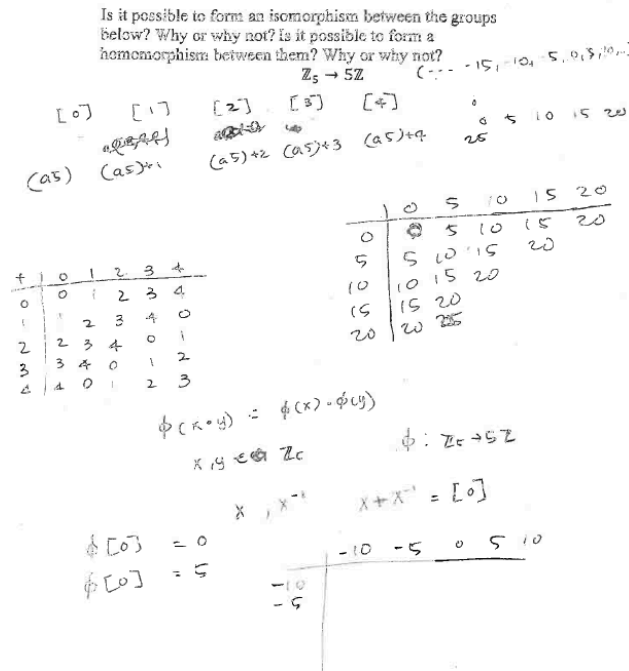 Is it possible to form an isomorphism between the groups
below? Why or why not? Is it possible to form a
homomorphism between them? Why or why not?
ℤ₅ → 5ℤ
(--- -15, -10, -5, 0, 5, 10, ...)
[0] [1] [2] [3] [4]
0 5 10 15 20
25
(a5) (a5)+1 (a5)+2 (a5)+3 (a5)+4
0 5 10 15 20
0 0 5 10 15 20
5 5 10 15 20
10 10 15 20
15 15 20
20 20
+ 0 1 2 3 4
0 0 1 2 3 4
1 1 2 3 4 0
2 2 3 4 0 1
3 3 4 0 1 2
4 4 0 1 2 3
ϕ(x∘y) = ϕ(x)∘ϕ(y)
x, y ∈ ℤ₅
ϕ: ℤ₅ → 5ℤ
x, x⁻¹ x + x⁻¹ = [0]
ϕ[0] = 0
ϕ[0] = 5
-10 -5 0 5 10
-10
-5